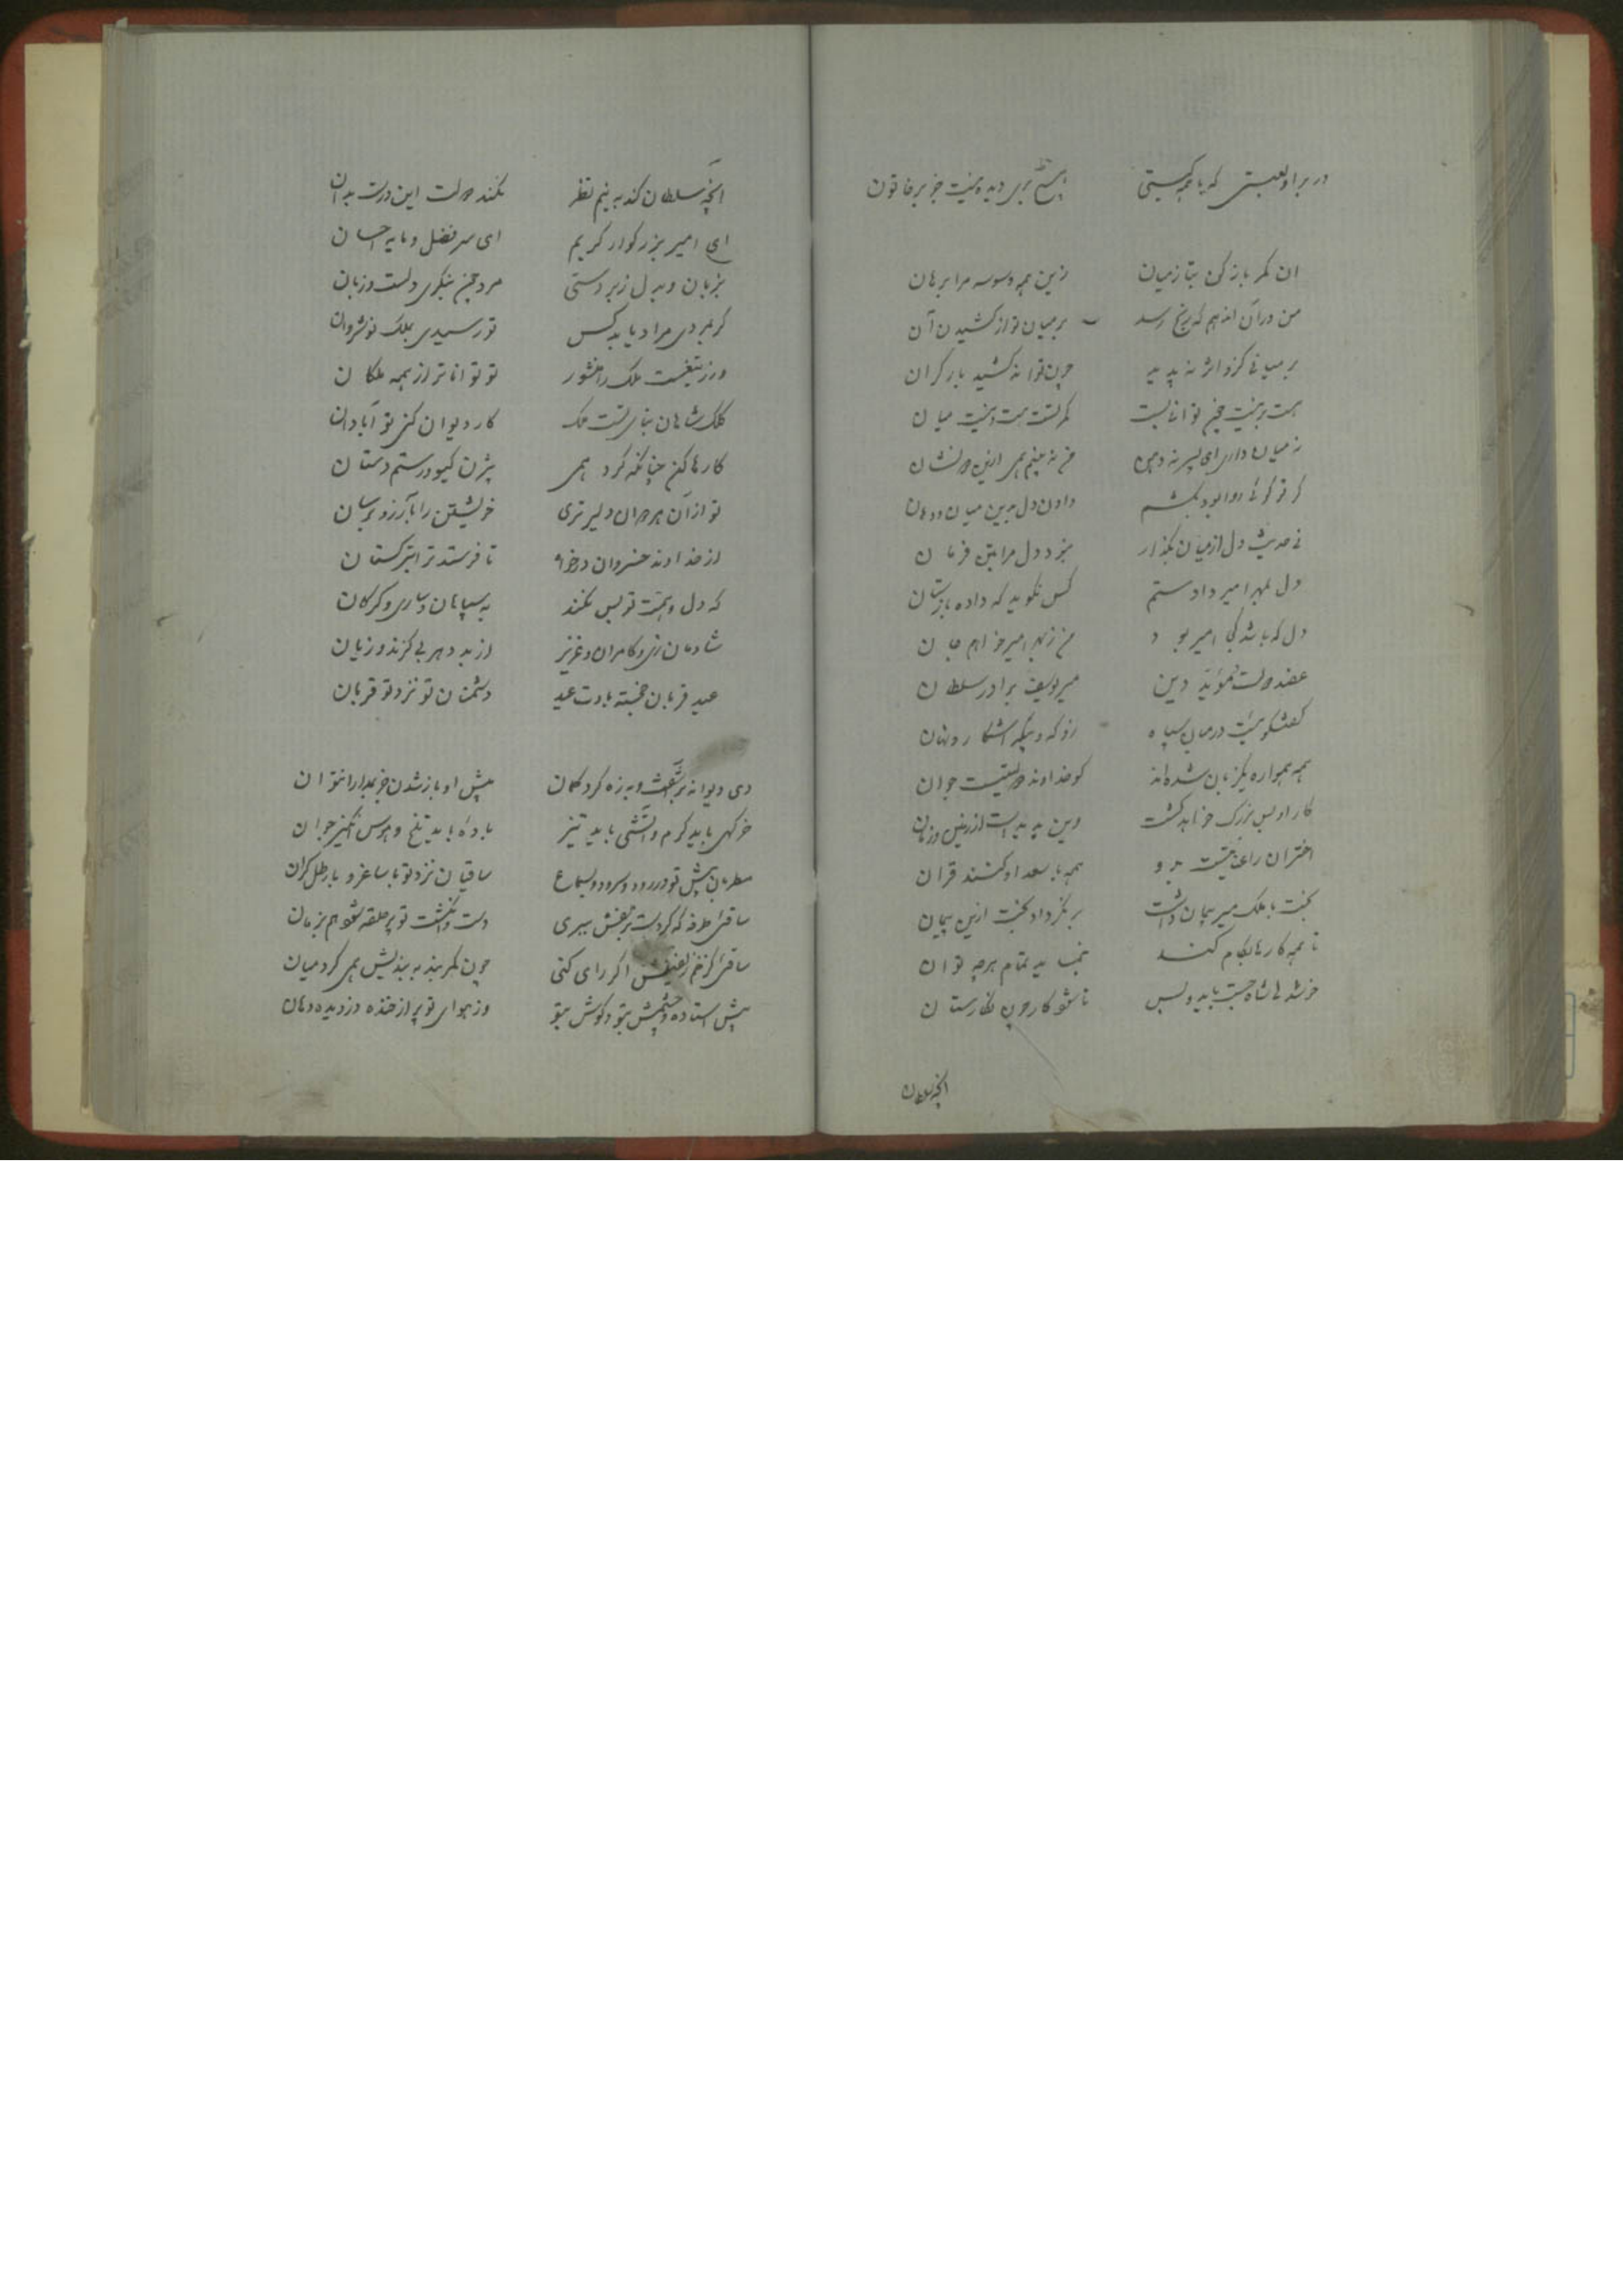 در بر او لعبتی که با همه گیتی هیچ بری دیده نیست جز بر خاتون
ان کمر باز کن بتا ز میان زین همه وسوسه مرا برهان
من در آن اندهم که رنج رسد بر میان تو از کشیدن آن
بر میانی کزو اثر نه پدید چون تواند کشید بار کران
هست و نیست توانا بست کمر تست هست و نیست میان
نه میان داری ای پسر نه دهن من نه بینم همی ازین دو نشان
کر تو کوئی روا بود بکشم دادن دل بدین میان و دهان
نی حدیث دل از میان بکذار نبود دل مرا بدین فرمان
دل بمهر امیر دادستم کس نکوید که داده بازستان
دل که باشد که امیر بود من ز بهر امیر خواهم جان
عضد دولت مؤید دین میر یوسف برادر سلطان
کفتکوئیست در میان سپاه زو که و بیکه آشکار و نهان
همه همواره یکزبان شده‌اند کو خداوند دولتیست جوان
کار او بس بزرک خواهد کشت وین پدید است از زمین و زمان
اختران را عنایتست بدو همه با سعد او کنند قران
بخت با ملک میر پیمان داشت برنکردد بخت ازین پیمان
تا همه کارها بکام کند بنماید تمام هر چه توان
خوشدلی شاه جست باید و بس تا شود کار چون نکارستان
انچه سلطان
آنچه سلطان کند به نیم نظر نکند دولت این درست بدان
ای امیر بزرکوار کریم ای سر فضل و مایه احسان
بزبان و بدل زبر دستی مرد چنین بنکری دلست و زبان
کر بمردی مراد یابد کس تو رسیدی بملک نوشروان
ور ز تیغست ملک را منشور تو تواناتر از همه ملکان
ملک شاهان بتیغ تست ملک کار دیوان کنی تو آبادان
کارها کن چنانکه کرد همی بیژن کیو و رستم دستان
تو از آن هر دوان دلیر تری خویشتن را بآرزو برسان
از خداوند خسروان درخواه تا فرستد ترا بترکستان
که دل و همت تو بس نکند به سپاهان و ساری و کرکان
شادمان زی و کامران و عزیز از بد دهر بی کزند و زیان
عید قربان خجسته بادت عید دشمنان تو نزد تو قربان
دی ز دیوانه بر آشفت و به زه کرد کمان پیش او باز شدن جز بمدارا نتوان
خرکهی باید کرم و آتشی باید تیز باده باید تلخ و هوس انکیز جوان
مطربان پیش تو در رود و سرود و سماع ساقیان نزد تو با ساغر و با رطل کران
ساقی طرفه که کر دست بزلفش ببری دست و انکشت تو پر حلقه شود هم بزمان
ساقی کز خم زلفینش اکر رای کنی چون کمر بند به بندیش همی کرد میان
پیش استاده و چشمش بتو و کوش بتو وز هوای تو پر از خنده دزدیده دهان